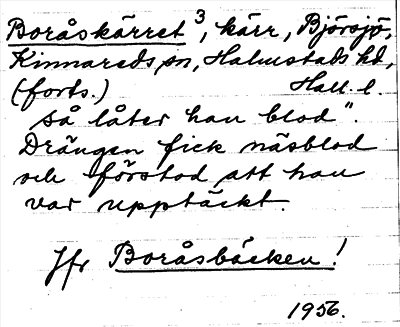 Boråskärret ³, kärr, Björsjö,
Kinnareds sn, Halmstads hd,
(forts.) Hall. l.
så låter han blod".
Drängen fick näsblod
och förstod att han
var upptäckt.
Jfr Boråsbäcken!
1956.